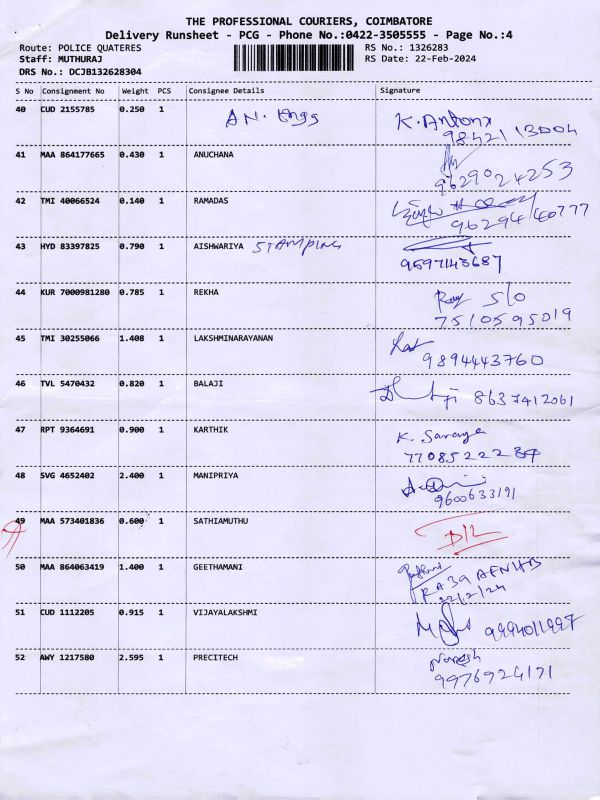 THE PROFESSIONAL COURIERS, COIMBATORE
Delivery Runsheet - PCG - Phone No.:0422-3505555 - Page No.:4
Route: POLICE QUATERES RS No.: 1326283
Staff: MUTHURAJ RS Date: 22-Feb-2024
DRS No.: DCJB132628304
S No Consignment No Weight PCS Consignee Details Signature
40 CUD 2155785 0.250 1 AN. K. Antony
98421 13004
41 MAA 864177665 0.430 1 ANUCHANA
9629024253
42 TMI 40066524 0.140 1 RAMADAS
9629440777
43 HYD 83397825 0.790 1 AISHWARIYA STAMPING
9597143687
44 KUR 7000981280 0.785 1 REKHA S/o
7510595019
45 TMI 30255066 1.408 1 LAKSHMINARAYANAN
9894443760
46 TVL 5470432 0.820 1 BALAJI 8637412061
47 RPT 9364691 0.900 1 KARTHIK K. Saraya
77085222
48 SVG 4652402 2.400 1 MANIPRIYA
9600633191
49 MAA 573401836 0.600 1 SATHIAMUTHU D/L
50 MAA 864063419 1.400 1 GEETHAMANI
22/2/24
51 CUD 1112205 0.915 1 VIJAYALAKSHMI 9994011997
52 AWY 1217580 2.595 1 PRECITECH Naresh
9976924171